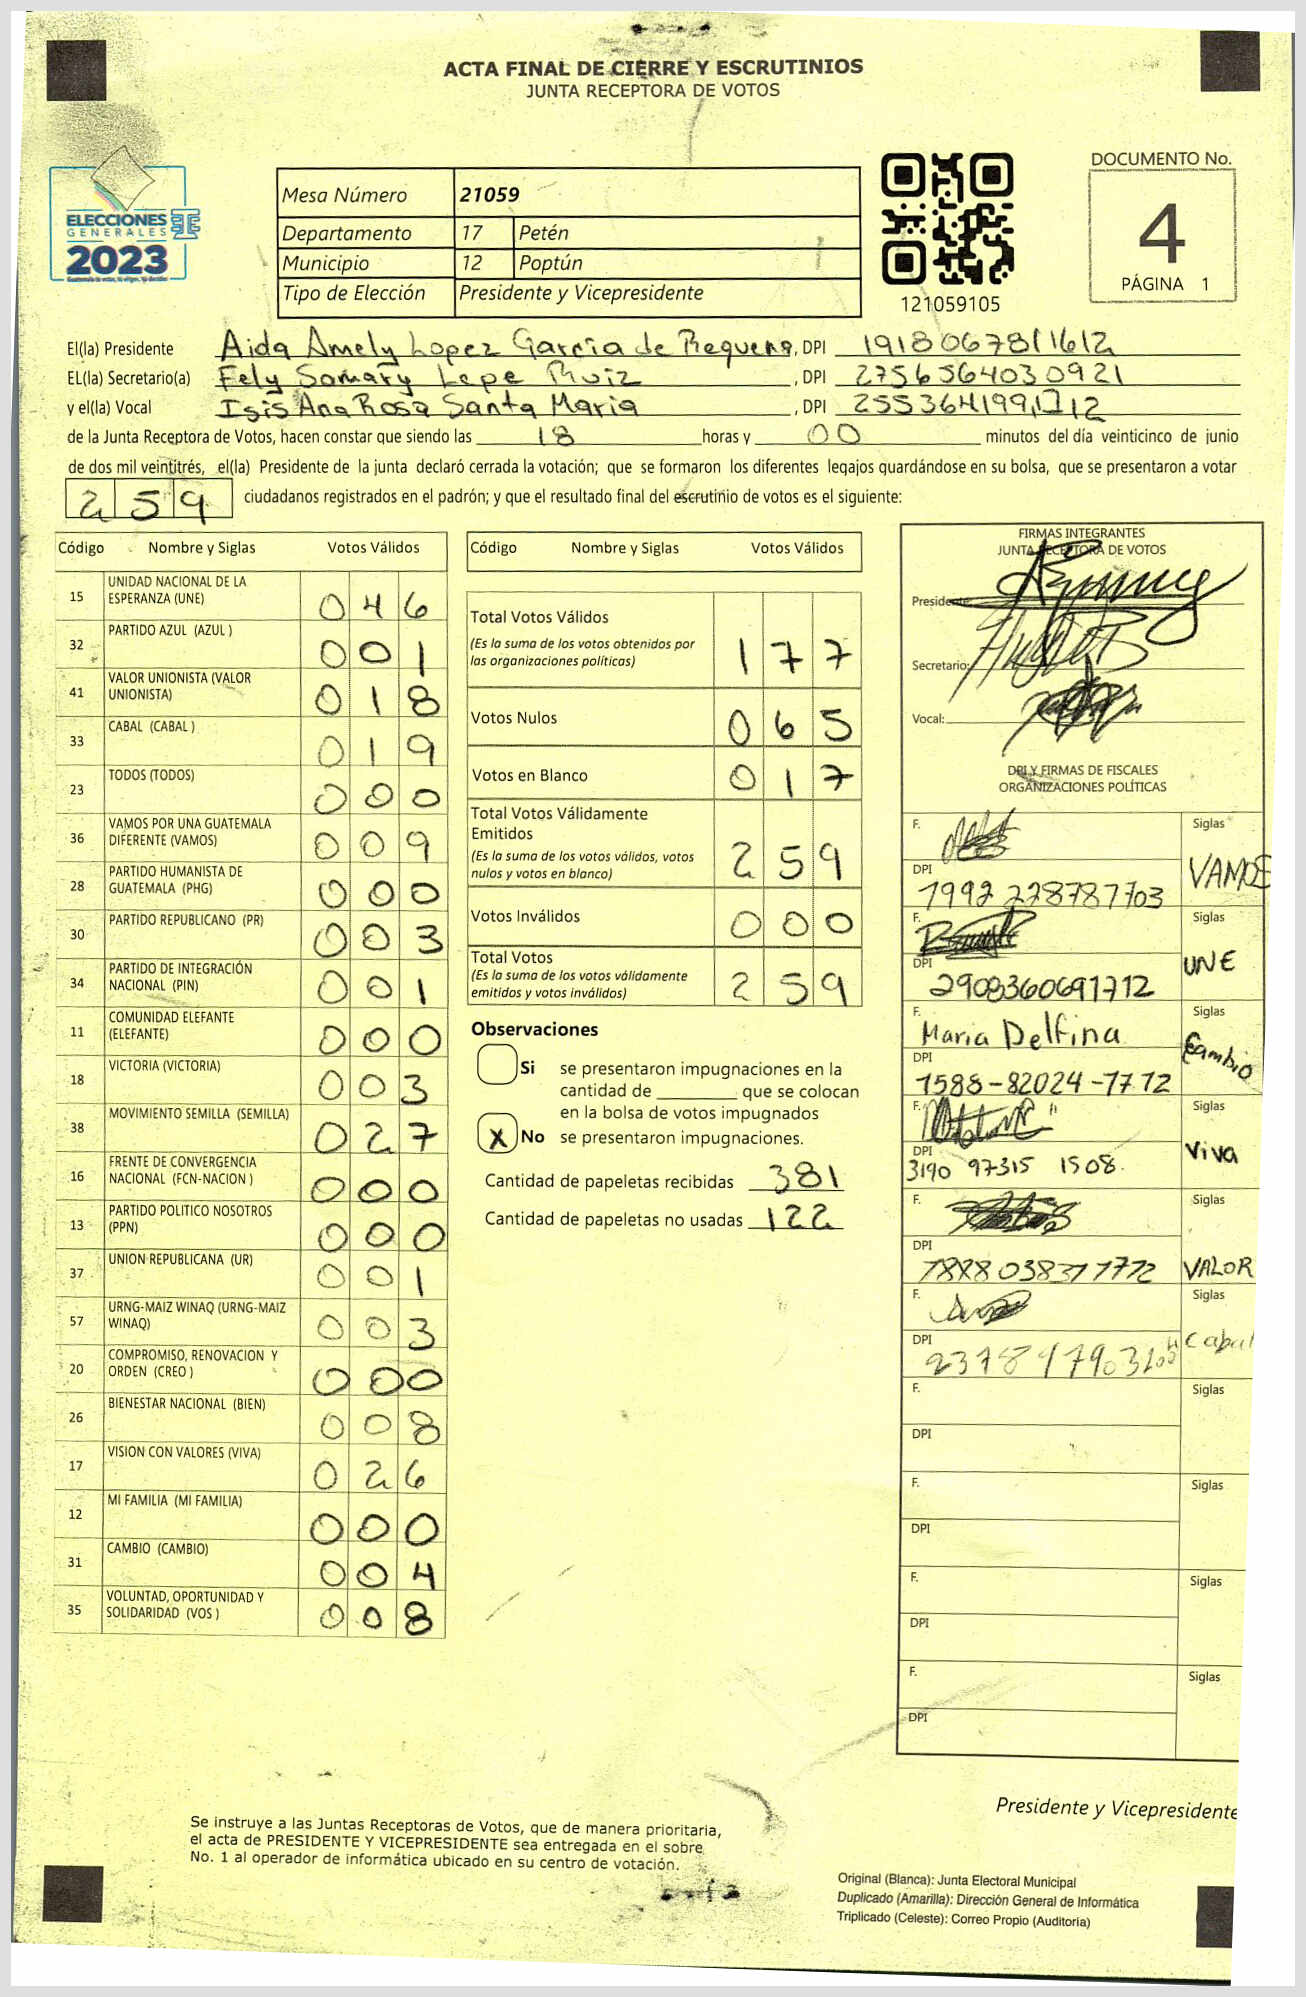 ACTA FINAL DE CIERRE Y ESCRUTINIOS
JUNTA RECEPTORA DE VOTOS
ELECCIONES
GENERALES
2023
Mesa Número 21059
Departamento 17 Petén
Municipio 12 Poptún
Tipo de Elección Presidente y Vicepresidente
121059105
DOCUMENTO No.
4
PÁGINA 1
El(la) Presidente Aida Amely Lopez García de Requena, DPI 1918067811612
EL(la) Secretario(a) Fely Somary Lepe Ruiz, DPI 2756564030921
y el(la) Vocal Isis Ana Rosa Santa Maria, DPI
de la Junta Receptora de Votos, hacen constar que siendo las 18 horas y 00 minutos del día veinticinco de junio
de dos mil veintitrés, el(la) Presidente de la junta declaró cerrada la votación; que se formaron los diferentes legajos guardándose en su bolsa, que se presentaron a votar
259 ciudadanos registrados en el padrón; y que el resultado final del escrutinio de votos es el siguiente:
Código Nombre y Siglas Votos Válidos
15 UNIDAD NACIONAL DE LA ESPERANZA (UNE) 046
32 PARTIDO AZUL (AZUL ) 001
41 VALOR UNIONISTA (VALOR UNIONISTA) 018
33 CABAL (CABAL ) 019
23 TODOS (TODOS) 000
36 VAMOS POR UNA GUATEMALA DIFERENTE (VAMOS) 009
28 PARTIDO HUMANISTA DE GUATEMALA (PHG) 000
30 PARTIDO REPUBLICANO (PR) 003
34 PARTIDO DE INTEGRACIÓN NACIONAL (PIN) 001
11 COMUNIDAD ELEFANTE (ELEFANTE) 000
18 VICTORIA (VICTORIA) 003
38 MOVIMIENTO SEMILLA (SEMILLA) 027
16 FRENTE DE CONVERGENCIA NACIONAL (FCN-NACION ) 000
13 PARTIDO POLITICO NOSOTROS (PPN) 000
37 UNION REPUBLICANA (UR) 001
57 URNG-MAIZ WINAQ (URNG-MAIZ WINAQ) 003
20 COMPROMISO, RENOVACION Y ORDEN (CREO ) 000
26 BIENESTAR NACIONAL (BIEN) 008
17 VISION CON VALORES (VIVA) 026
12 MI FAMILIA (MI FAMILIA) 000
31 CAMBIO (CAMBIO) 004
35 VOLUNTAD, OPORTUNIDAD Y SOLIDARIDAD (VOS ) 008
Código Nombre y Siglas Votos Válidos
Total Votos Válidos 177
(Es la suma de los votos obtenidos por
las organizaciones políticas)
Votos Nulos 065
Votos en Blanco 017
Total Votos Válidamente
Emitidos 259
(Es la suma de los votos válidos, votos
nulos y votos en blanco)
Votos Inválidos 000
Total Votos 259
(Es la suma de los votos válidamente
emitidos y votos inválidos)
Observaciones
Si se presentaron impugnaciones en la
cantidad de ________ que se colocan
en la bolsa de votos impugnados
X No se presentaron impugnaciones.
Cantidad de papeletas recibidas 381
Cantidad de papeletas no usadas 122
FIRMAS INTEGRANTES
JUNTA RECEPTORA DE VOTOS
Presidente:
Secretario:
Vocal:
DPI Y FIRMAS DE FISCALES
ORGANIZACIONES POLÍTICAS
F. Siglas
VAMOS
DPI
1992 228787703
F. Siglas
UNE
DPI
2908360691712
F. Siglas
Maria Delfina Cambio
DPI
1588-82024-1712
F. Siglas
Viva
DPI
3190 97315 1508.
F. Siglas
DPI
VALOR
F. Siglas
Cabal
DPI
F. Siglas
DPI
F. Siglas
DPI
F. Siglas
DPI
F. Siglas
DPI
Presidente y Vicepresidente
Se instruye a las Juntas Receptoras de Votos, que de manera prioritaria,
el acta de PRESIDENTE Y VICEPRESIDENTE sea entregada en el sobre
No. 1 al operador de informática ubicado en su centro de votación.
Original (Blanca): Junta Electoral Municipal
Duplicado (Amarilla): Dirección General de Informática
Triplicado (Celeste): Correo Propio (Auditoria)